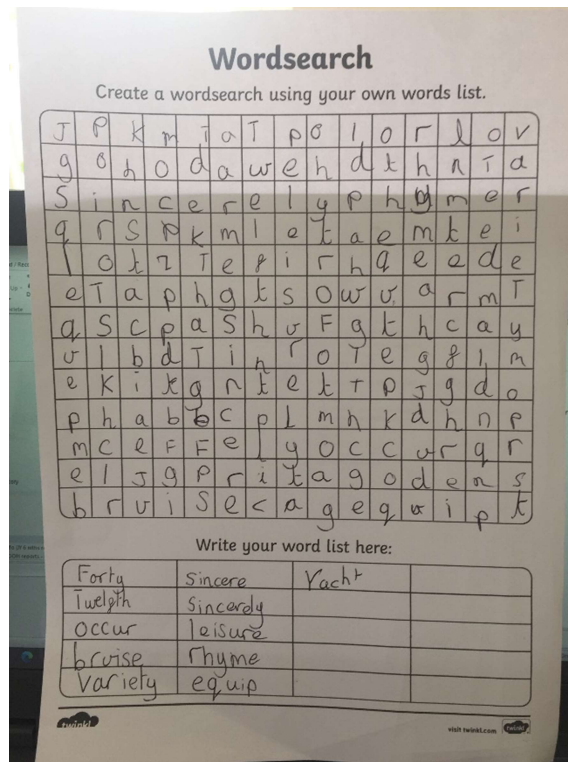 Wordsearch
Create a wordsearch using your own words list.
J P K m i a T p o l o r l o v
g o h o d a w e h d t h n T a
S i n c e r e l y p h g m e r
q r s p k m l e t a e m t e i
l o t z T e f i r h q e e d e
e T a p h g t s o w v a r m T
q S c p a S h u F g t h c a y
u l b d T i n r o T e g f l m
e k i t g n t e t T p J g d o
p h a b b c p l m h k d h n p
m c e F F e l y o c c u r q r
e l J g p r i t a g o d e n s
b r u i S e c a g e q u i p t
Write your word list here:
Forty sincere Yacht
Twelgth sincerely
occur leisure
bruise rhyme
Variety equip
twinkl
visit twinkl.com
twinkl